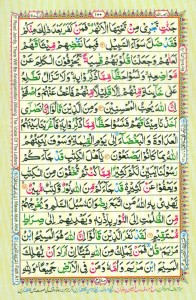 جَنّٰتٍ تَجْرِيْ مِنْ تَحْتِهَا الْاَنْهٰرُ فَمَنْ كَفَرَ بَعْدَ ذٰلِكَ مِنْكُمْ
فَقَدْ ضَلَّ سَوَآءَ السَّبِيْلِ فَبِمَا نَقْضِهِمْ مِّيْثَاقَهُمْ
لَعَنّٰهُمْ وَجَعَلْنَا قُلُوْبَهُمْ قٰسِيَةً يُحَرِّفُوْنَ الْكَلِمَ عَنْ
مَّوَاضِعِهٖ وَنَسُوْا حَظًّا مِّمَّا ذُكِّرُوْا بِهٖ وَلَا تَزَالُ تَطَّلِعُ عَلٰى
خَآئِنَةٍ مِّنْهُمْ اِلَّا قَلِيْلًا مِّنْهُمْ فَاعْفُ عَنْهُمْ وَاصْفَحْ اِنَّ
اللّٰهَ يُحِبُّ الْمُحْسِنِيْنَ وَمِنَ الَّذِيْنَ قَالُوْٓا اِنَّا نَصٰرٰٓى
اَخَذْنَا مِيْثَاقَهُمْ فَنَسُوْا حَظًّا مِّمَّا ذُكِّرُوْا بِهٖ فَاَغْرَيْنَا بَيْنَهُمُ
الْعَدَاوَةَ وَالْبَغْضَآءَ اِلٰى يَوْمِ الْقِيٰمَةِ وَسَوْفَ يُنَبِّئُهُمُ
اللّٰهُ بِمَا كَانُوْا يَصْنَعُوْنَ يٰٓاَهْلَ الْكِتٰبِ قَدْ جَآءَكُمْ
رَسُوْلُنَا يُبَيِّنُ لَكُمْ كَثِيْرًا مِّمَّا كُنْتُمْ تُخْفُوْنَ مِنَ الْكِتٰبِ
وَيَعْفُوْا عَنْ كَثِيْرٍ قَدْ جَآءَكُمْ مِّنَ اللّٰهِ نُوْرٌ وَّكِتٰبٌ
مُّبِيْنٌ يَّهْدِيْ بِهِ اللّٰهُ مَنِ اتَّبَعَ رِضْوَانَهٗ سُبُلَ السَّلٰمِ وَيُخْرِجُهُمْ
مِّنَ الظُّلُمٰتِ اِلَى النُّوْرِ بِاِذْنِهٖ وَيَهْدِيْهِمْ اِلٰى صِرَاطٍ
مُّسْتَقِيْمٍ لَقَدْ كَفَرَ الَّذِيْنَ قَالُوْٓا اِنَّ اللّٰهَ هُوَ الْمَسِيْحُ ابْنُ
مَرْيَمَ قُلْ فَمَنْ يَّمْلِكُ مِنَ اللّٰهِ شَيْـًٔا اِنْ اَرَادَ اَنْ يُّهْلِكَ
الْمَسِيْحَ ابْنَ مَرْيَمَ وَاُمَّهٗ وَمَنْ فِى الْاَرْضِ جَمِيْعًا وَلِلّٰهِ